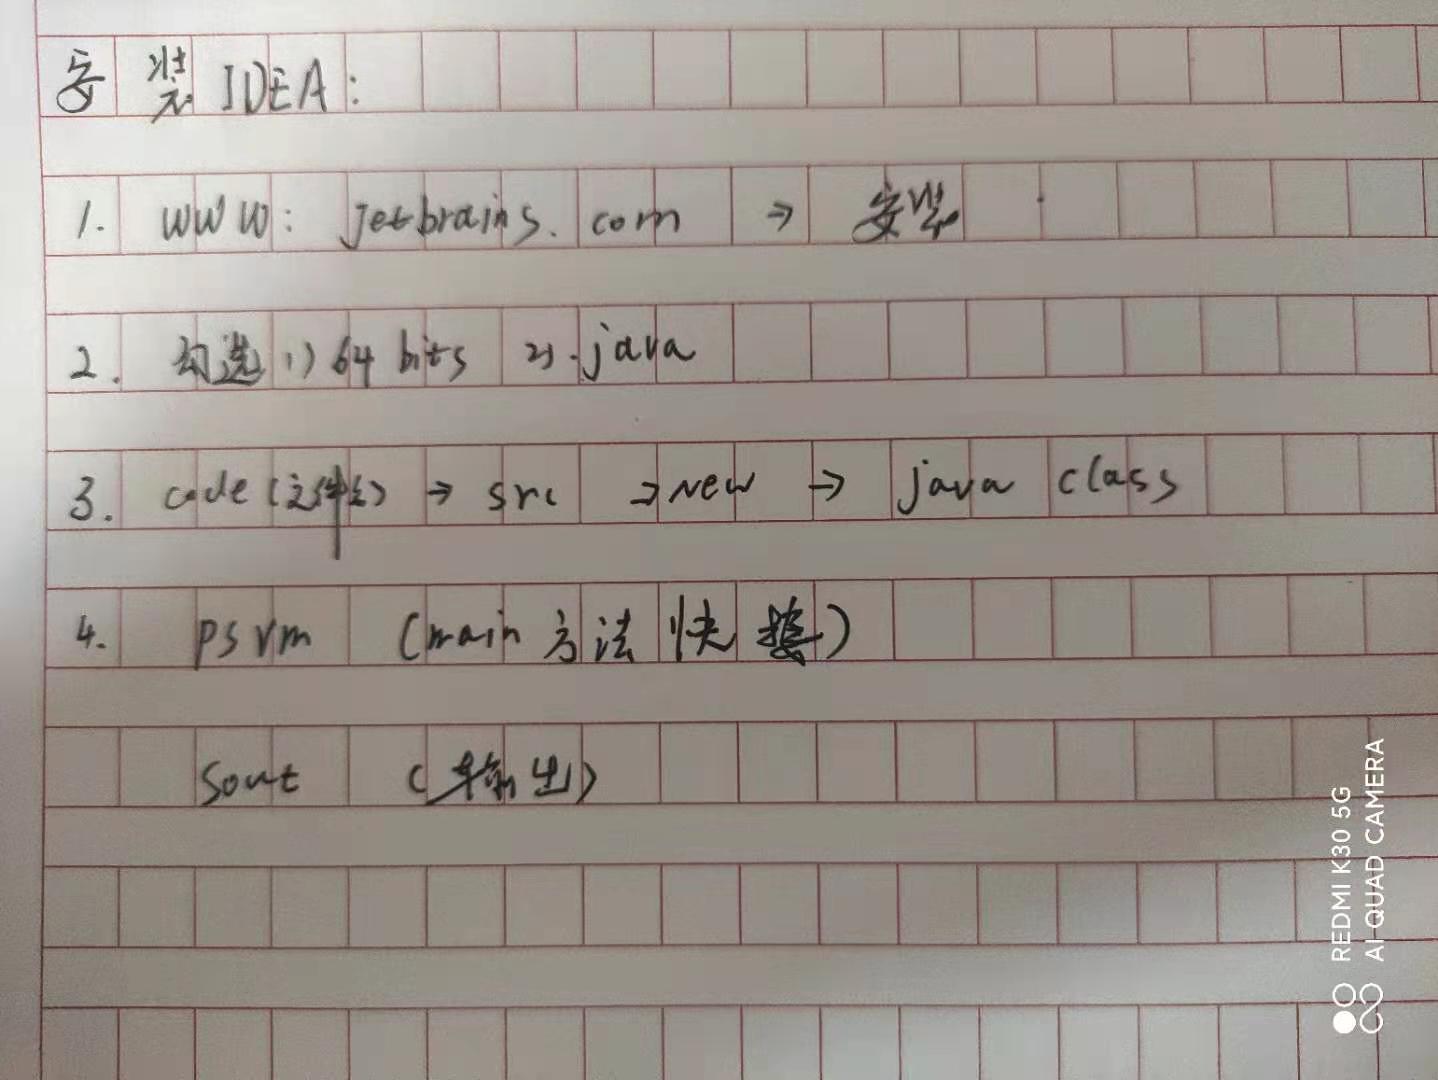 安装IDEA:
1. www: jetbrains.com → 安装
2. 勾选 1) 64 bits 2). java
3. code (文件名) → src → New → java class
4. psvm (main 方法快捷)
sout (输出)
REDMI K30 5G
AI QUAD CAMERA